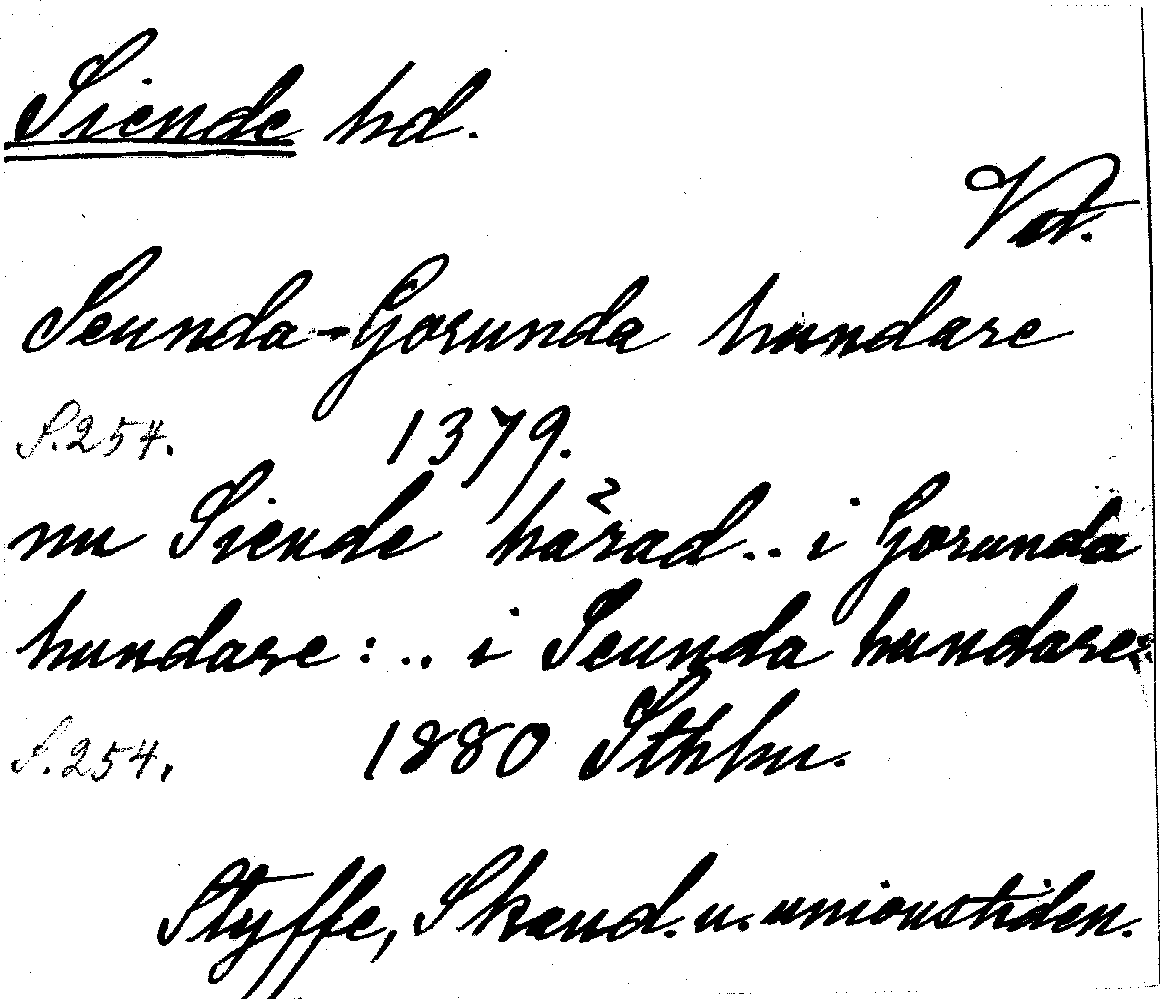 Siende hd.
Vst.
Seunda-Gorunda hundare
S.254. 1379.
nu Siende härad.. i Gorunda
hundare: .. i Seunda hundare
S.254. 1880 Sthlm.
Styffe, Skand. u. unionstiden.